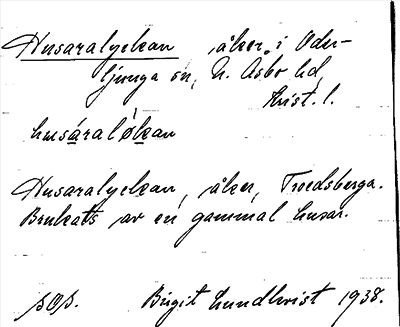 Husaralyckan åker i Oder-
ljunga sn, N. Åsbo hd,
Krist. l.
husáraløkan
Husaralyckan, åker, Tvedsberga.
Brukats av en gammal husar.
Birgit Lundkvist 1938.